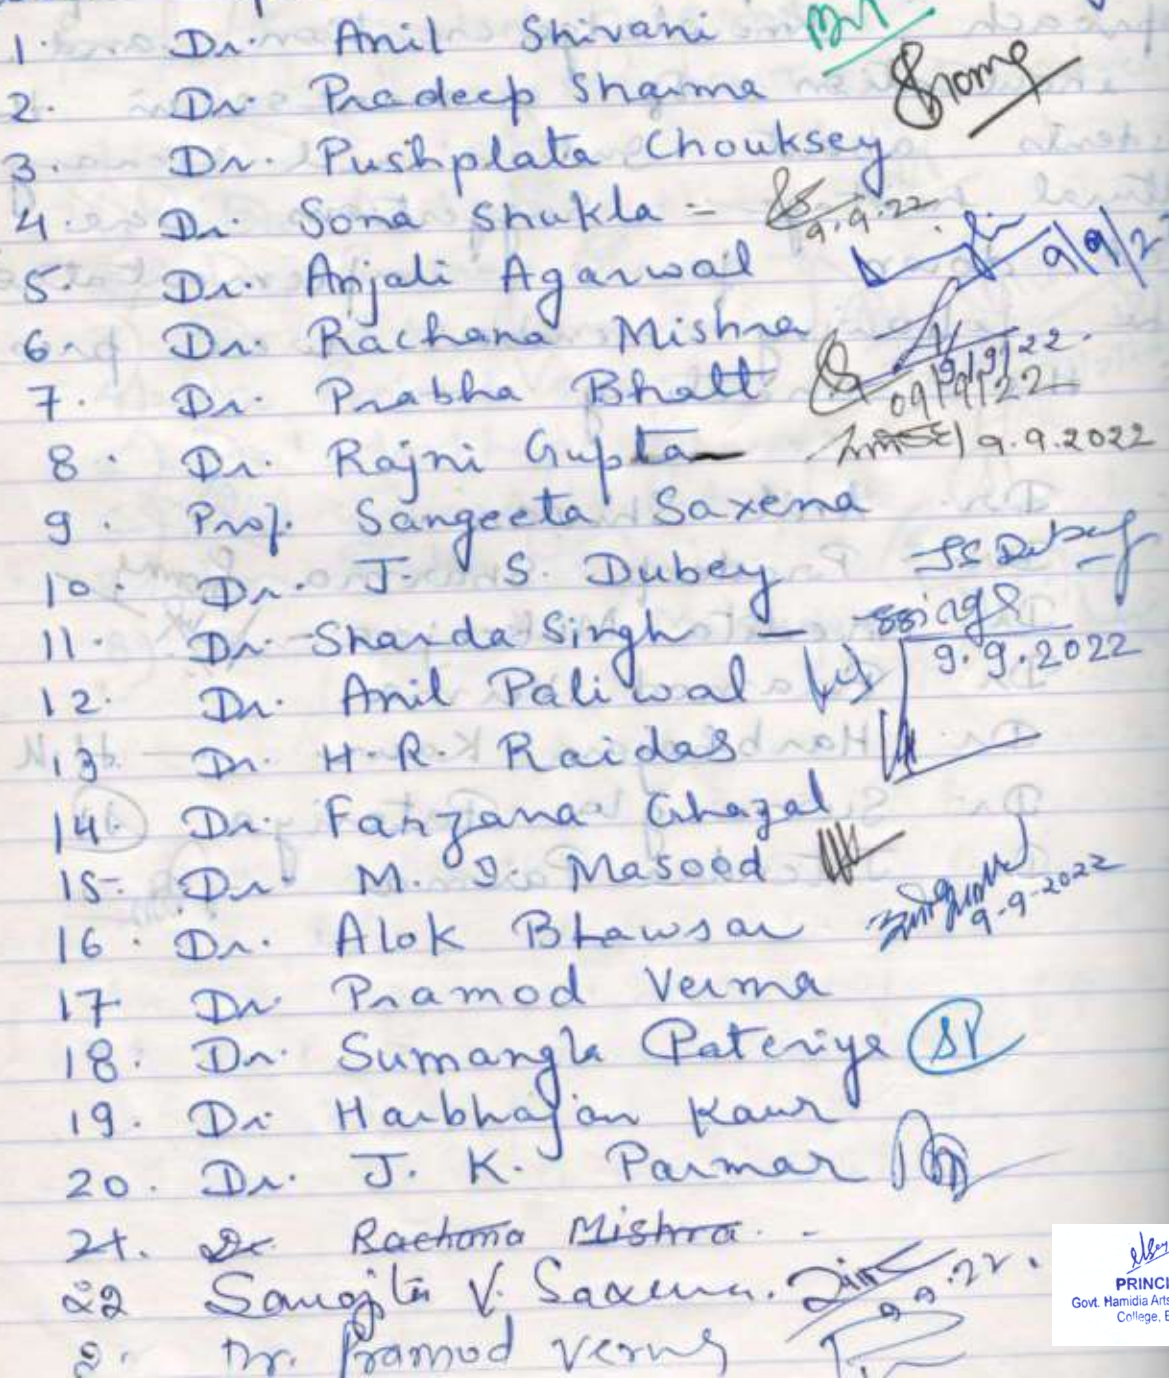 1. Dr. Anil Shivani
2. Dr. Pradeep Sharma
3. Dr. Pushplata Chouksey
4. Dr. Sona Shukla - 9.9.22
5. Dr. Anjali Agarwal 9/9/2
6. Dr. Rachana Mishra 9/9/22.
7. Dr. Prabha Bhatt 09/9/22
8. Dr. Rajni Gupta 9.9.2022
9. Prof. Sangeeta Saxena
10. Dr. J. S. Dubey JS Dubey
11. Dr. Sharda Singh - 9.9.2022
12. Dr. Anil Paliwal
13. Dr. H.R. Raidas
14. Dr. Farzana Ghazal
15. Dr. M. I. Masood
16. Dr. Alok Bhawsar 9-9-2022
17 Dr. Pramod Verma
18. Dr. Sumangla Pateriya SP
19. Dr. Harbhajan Kaur
20. Dr. J. K. Parmar
21. Dr Rachana Mishra. -
22 Sangita V. Saxena. 9.9.22.
2. Dr. Pramod Verma
PRINCI
Govt. Hamidia Arts
College, B